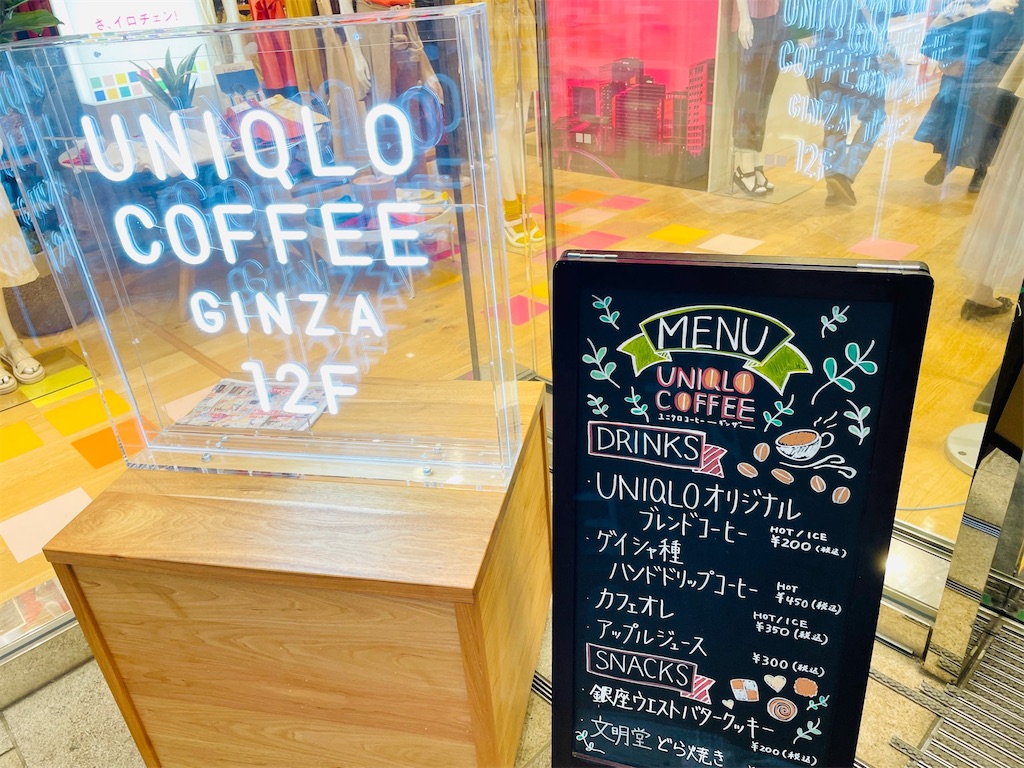 さ、イロチェン!
UNIQLO
COFFEE
GINZA
12F
MENU
UNIQLO
COFFEE
ユニクロコーヒー ギンザ
DRINKS
・UNIQLOオリジナル
ブレンドコーヒー HOT/ICE ¥200(税込)
・ゲイシャ種
ハンドドリップコーヒー HOT ¥450(税込)
・カフェオレ HOT/ICE ¥350(税込)
・アップルジュース ¥300(税込)
SNACKS
・銀座ウエストバタークッキー ¥200(税込)
・文明堂 どら焼き
UNIQLO
COFFEE
GINZA
12F